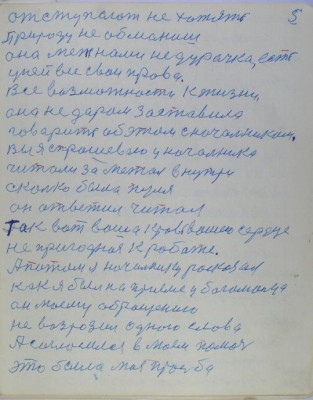 отступают не хотять 5
природу не обманиш
она меж нами не дурачка, ест
у ней вие свои права.
Все возможности к жизни,
она не даром заставила
говорить об этом с началником.
Вы я спрошеваю у началника
читали За метал внутри
сколко была пуля
он ответил читал
Так вот ваша сердце
не пригодная к работе.
А потом я началнику росказал
как я был на приеме у
он моему обращению
не возрозил одного слова
А согласился в моем помоч
это была моя прозба